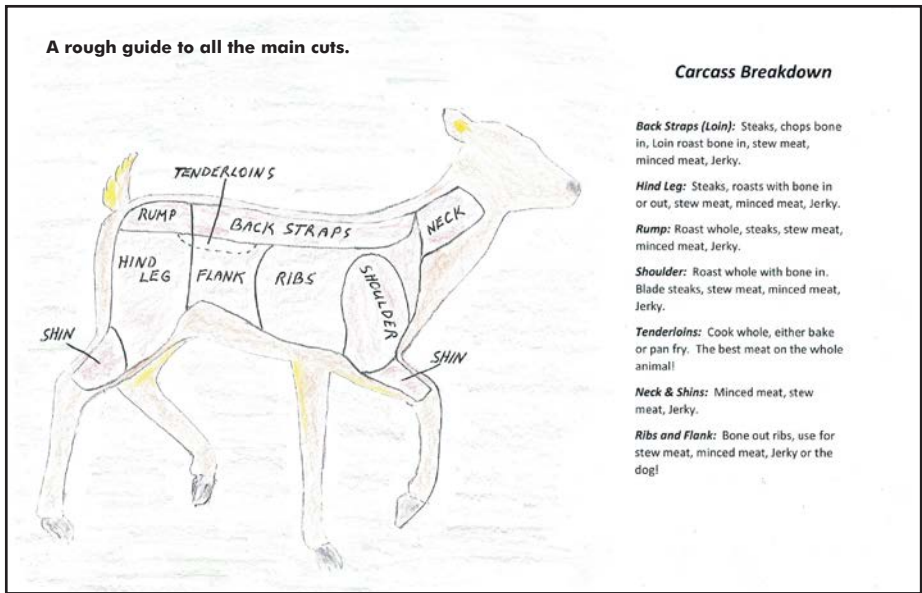 A rough guide to all the main cuts.
Carcass Breakdown
TENDERLOINS
RUMP
BACK STRAPS
NECK
HIND
LEG
FLANK
RIBS
SHOULDER
SHIN
SHIN
Back Straps (Loin): Steaks, chops bone
in, Loin roast bone in, stew meat,
minced meat, Jerky.
Hind Leg: Steaks, roasts with bone in
or out, stew meat, minced meat, Jerky.
Rump: Roast whole, steaks, stew meat,
minced meat, Jerky.
Shoulder: Roast whole with bone in.
Blade steaks, stew meat, minced meat,
Jerky.
Tenderloins: Cook whole, either bake
or pan fry. The best meat on the whole
animal!
Neck & Shins: Minced meat, stew
meat, Jerky.
Ribs and Flank: Bone out ribs, use for
stew meat, minced meat, Jerky or the
dog!